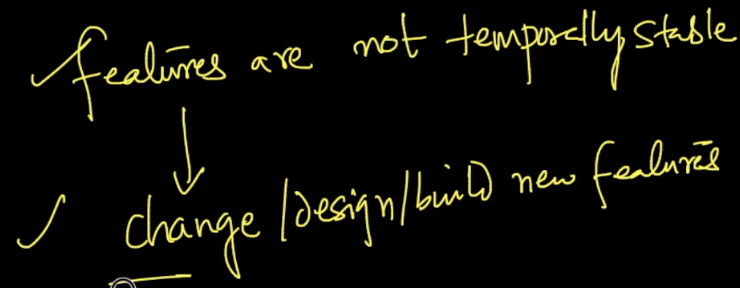 features are not temporally stable
change/design/build new features